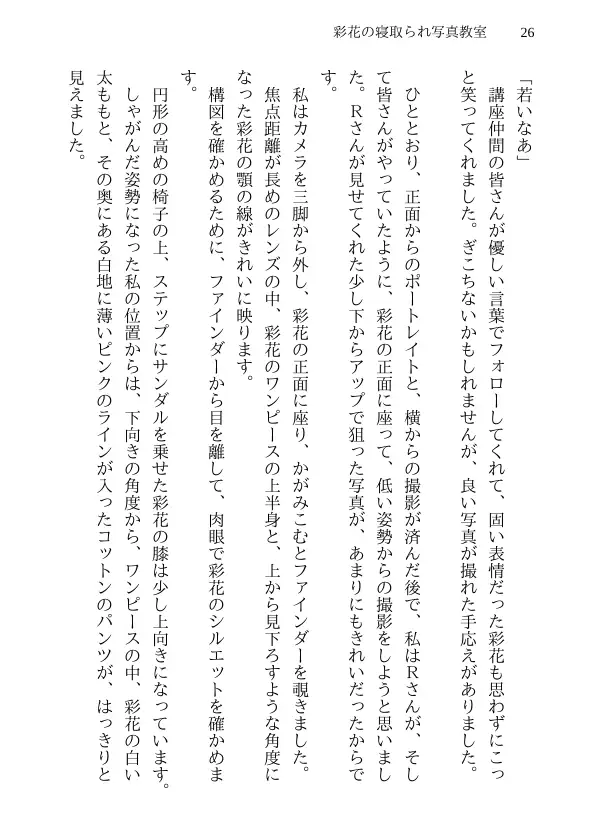 彩花の寝取られ写真教室
26
「若いなあ」
講座仲間の皆さんが優しい言葉でフォローしてくれて、固い表情だった彩花も思わずにこっ
と笑ってくれました。ぎこちないかもしれませんが、良い写真が撮れた手応えがありました。
ひととおり、正面からのポートレイトと、横からの撮影が済んだ後で、私はＲさんが、そし
て皆さんがやっていたように、彩花の正面に座って、低い姿勢からの撮影をしようと思いまし
た。Ｒさんが見せてくれた少し下からアップで狙った写真が、あまりにもきれいだったからで
す。
私はカメラを三脚から外し、彩花の正面に座り、かがみこむとファインダーを覗きました。
焦点距離が長めのレンズの中、彩花のワンピースの上半身と、上から見下ろすような角度に
なった彩花の顎の線がきれいに映ります。
構図を確かめるために、ファインダーから目を離して、肉眼で彩花のシルエットを確かめま
す。
円形の高めの椅子の上、ステップにサンダルを乗せた彩花の膝は少し上向きになっています。
しゃがんだ姿勢になった私の位置からは、下向きの角度から、ワンピースの中、彩花の白い
太ももと、その奥にある白地に薄いピンクのラインが入ったコットンのパンツが、はっきりと
見えました。